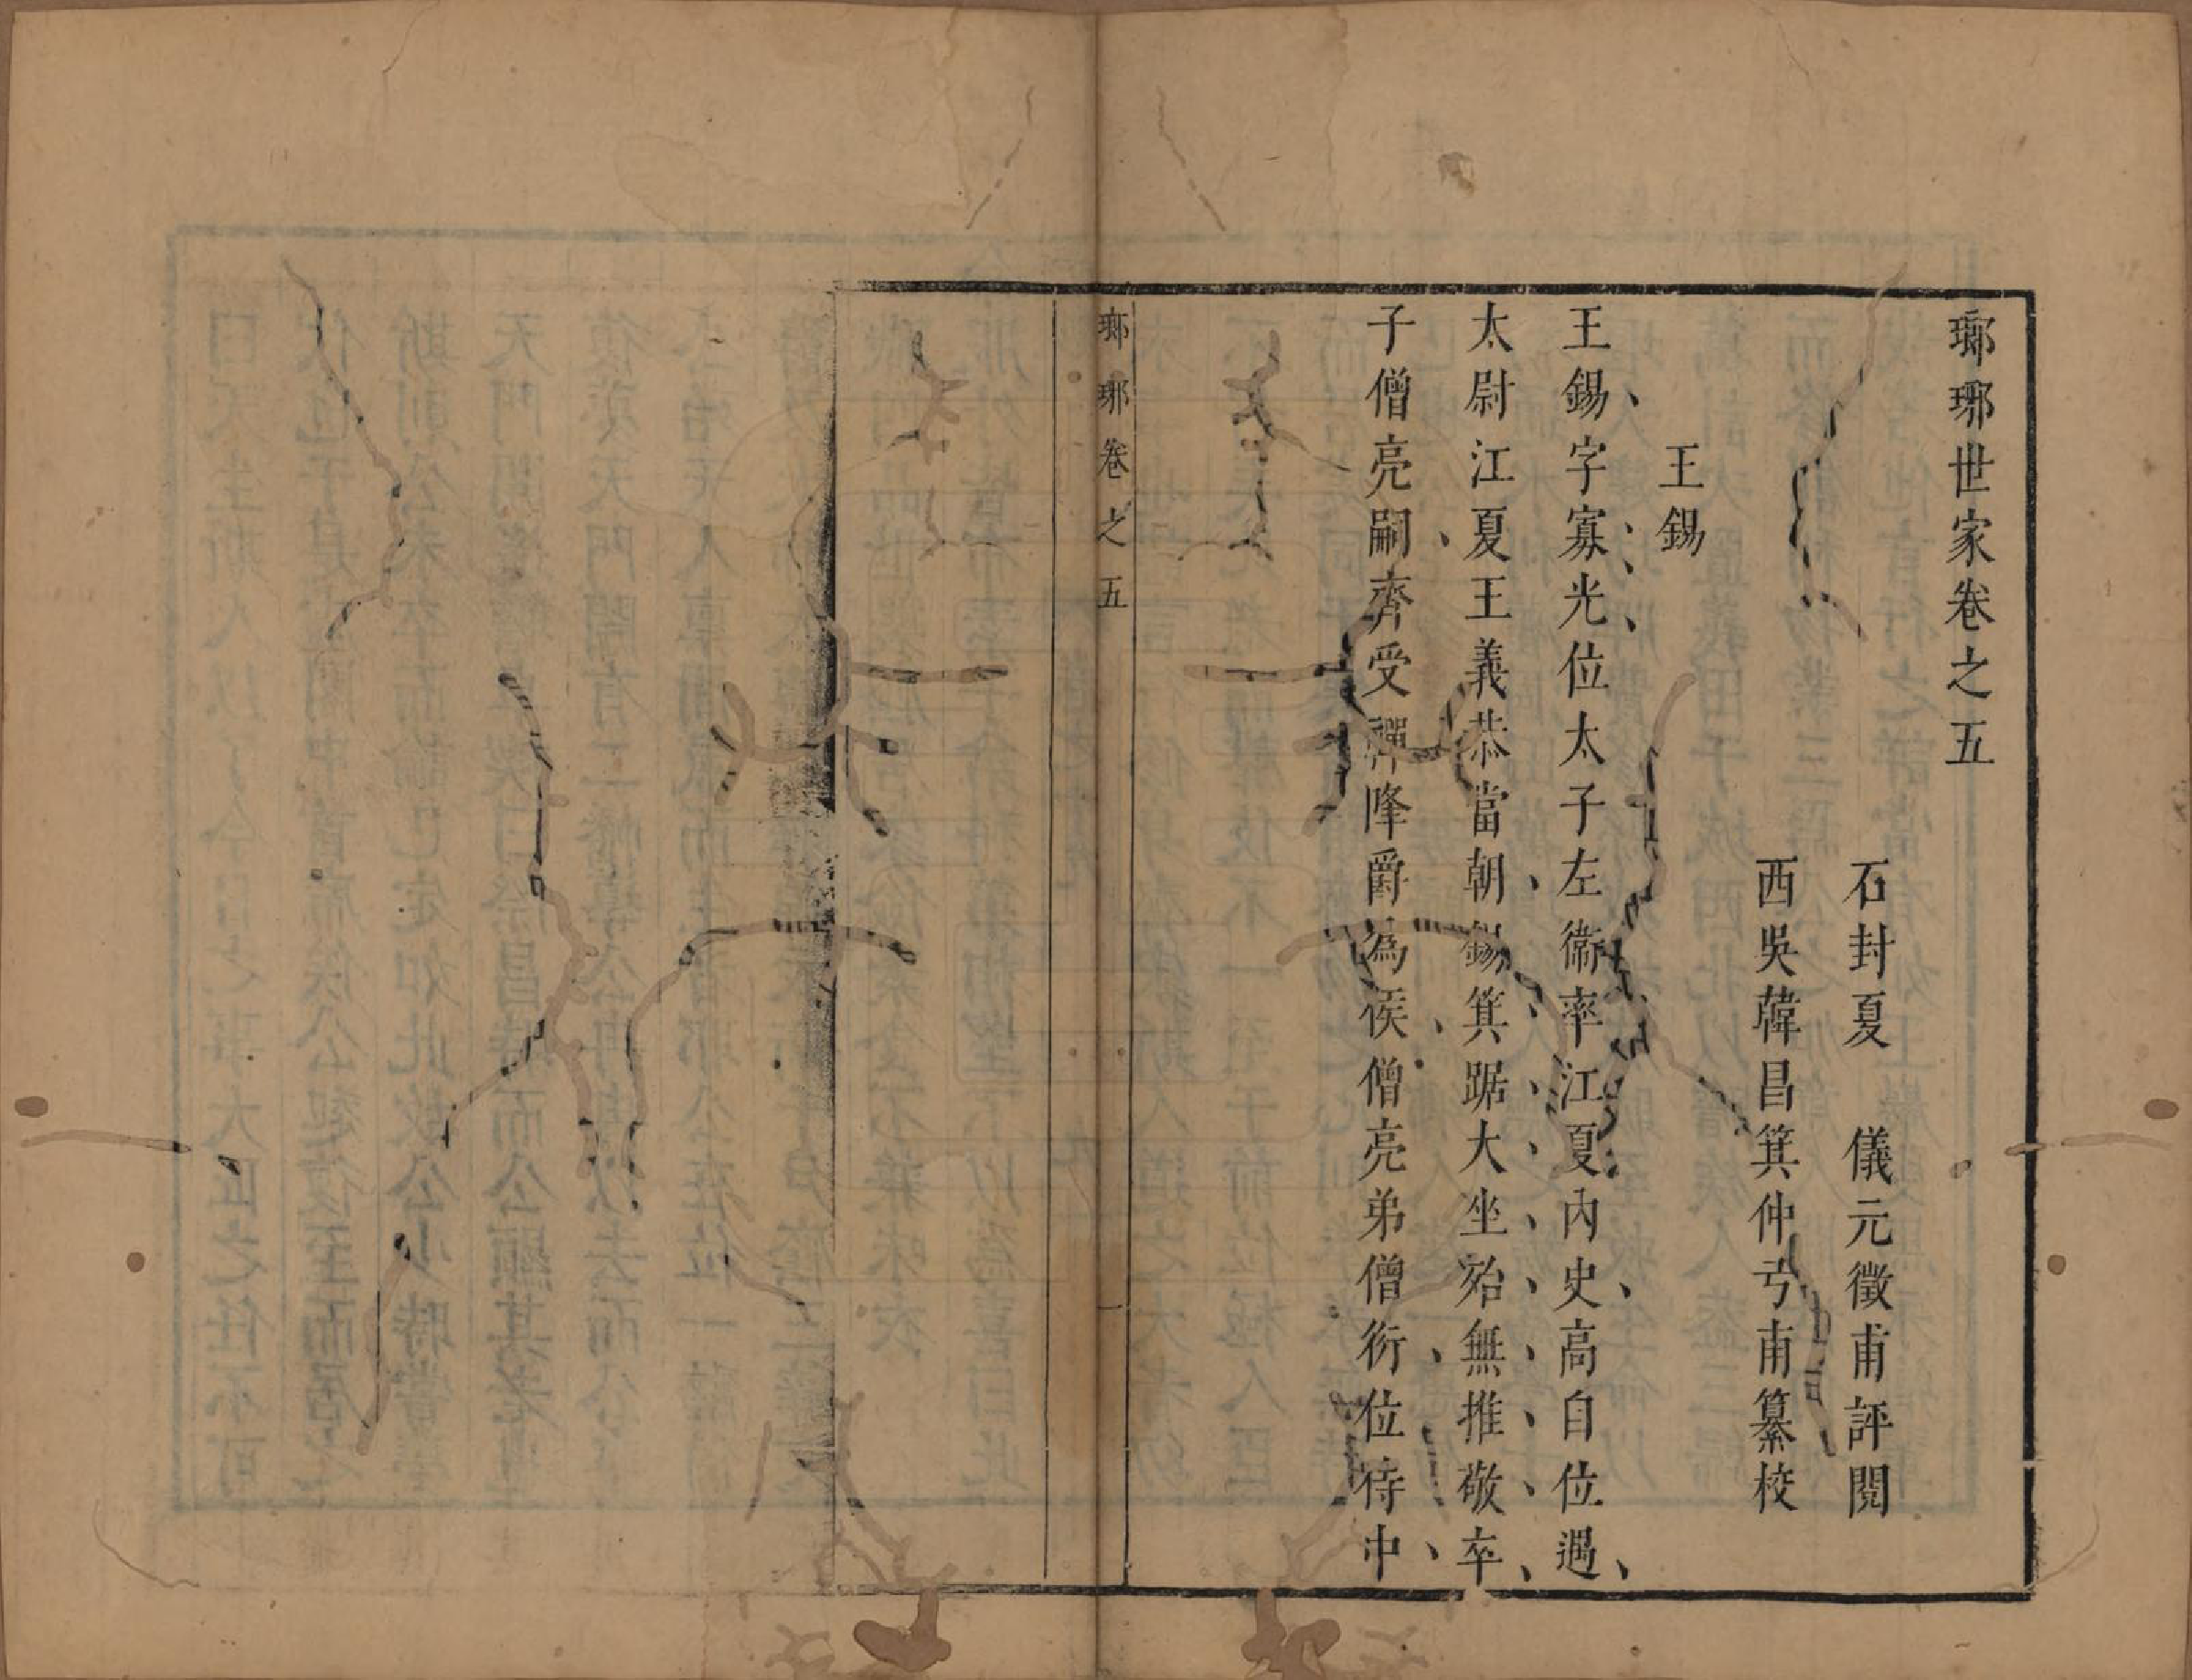 瑯琊世家卷之五
石封夏　儀元徵甫評閱
西吳韓昌箕仲弓甫纂校
王錫
王錫字寡光位太子左衞率江夏內史高自位遇
太尉江夏王義恭當朝錫箕踞大坐殆無推敬卒
子僧亮嗣齊受禪降爵爲侯僧亮弟僧衍位侍中
瑯琊卷之五
一